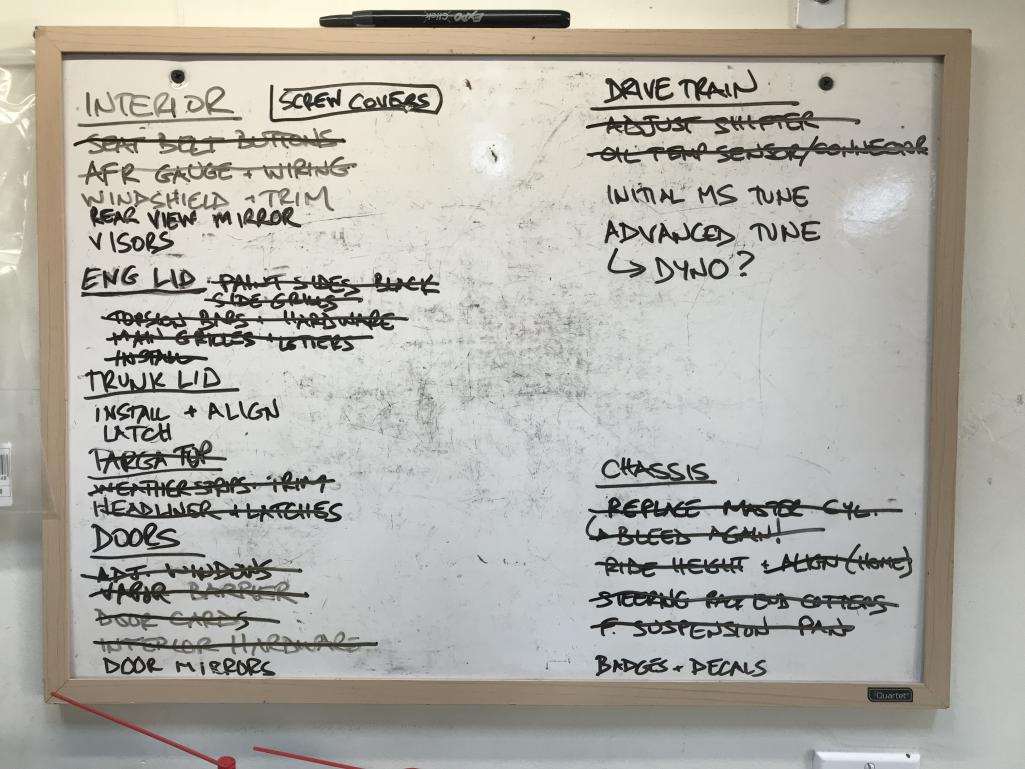 EXPO click
INTERIOR
SCREW COVERS
SEAT BELT BUTTONS
AFR GAUGE + WIRING
WINDSHIELD + TRIM
REAR VIEW MIRROR
VISORS
ENG LID PAINT SIDES BLACK
SIDE GRILLS
TORSION BARS + HARDWARE
MAIN GRILLES + LETTERS
INSTALL
TRUNK LID
INSTALL + ALIGN
LATCH
TARGA TOP
WEATHERSTRIPS TRIM
HEADLINER + LATCHES
DOORS
ADJ. WINDOWS
VAPOR BARRIER
DOOR CARDS
INTERIOR HARDWARE
DOOR MIRRORS
DRIVE TRAIN
ADJUST SHIFTER
OIL TEMP SENSOR/CONNECTOR
INITIAL MS TUNE
ADVANCED TUNE
↳ DYNO?
CHASSIS
REPLACE MASTER CYL.
↳ BLEED AGAIN!
RIDE HEIGHT + ALIGN (HOME)
STEERING RACK END COTTERS
F. SUSPENSION PAN
BADGES + DECALS
Quartet